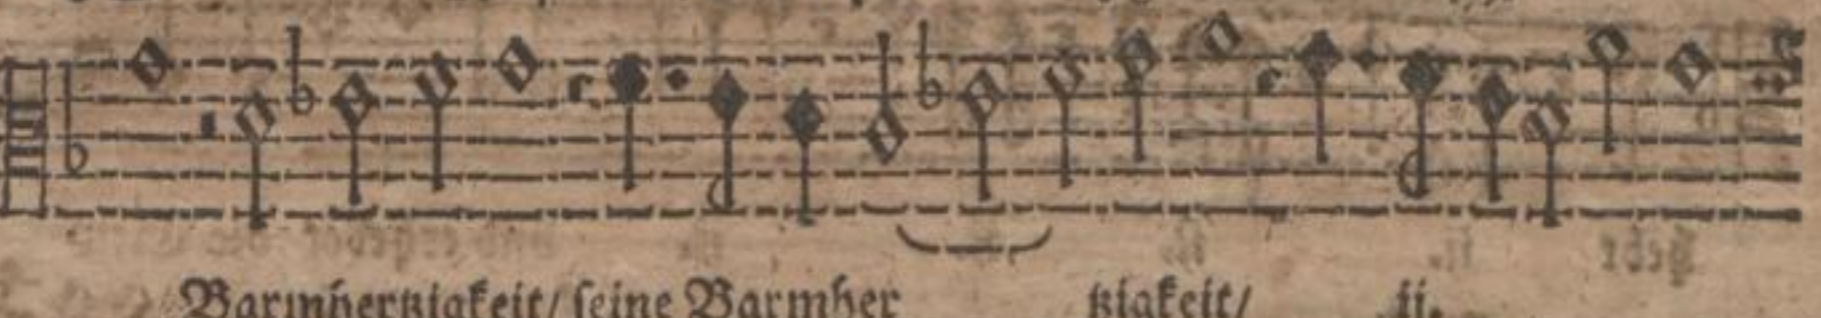 Barmhertzigkeit/ seine Barmher tzigkeit/ ij.